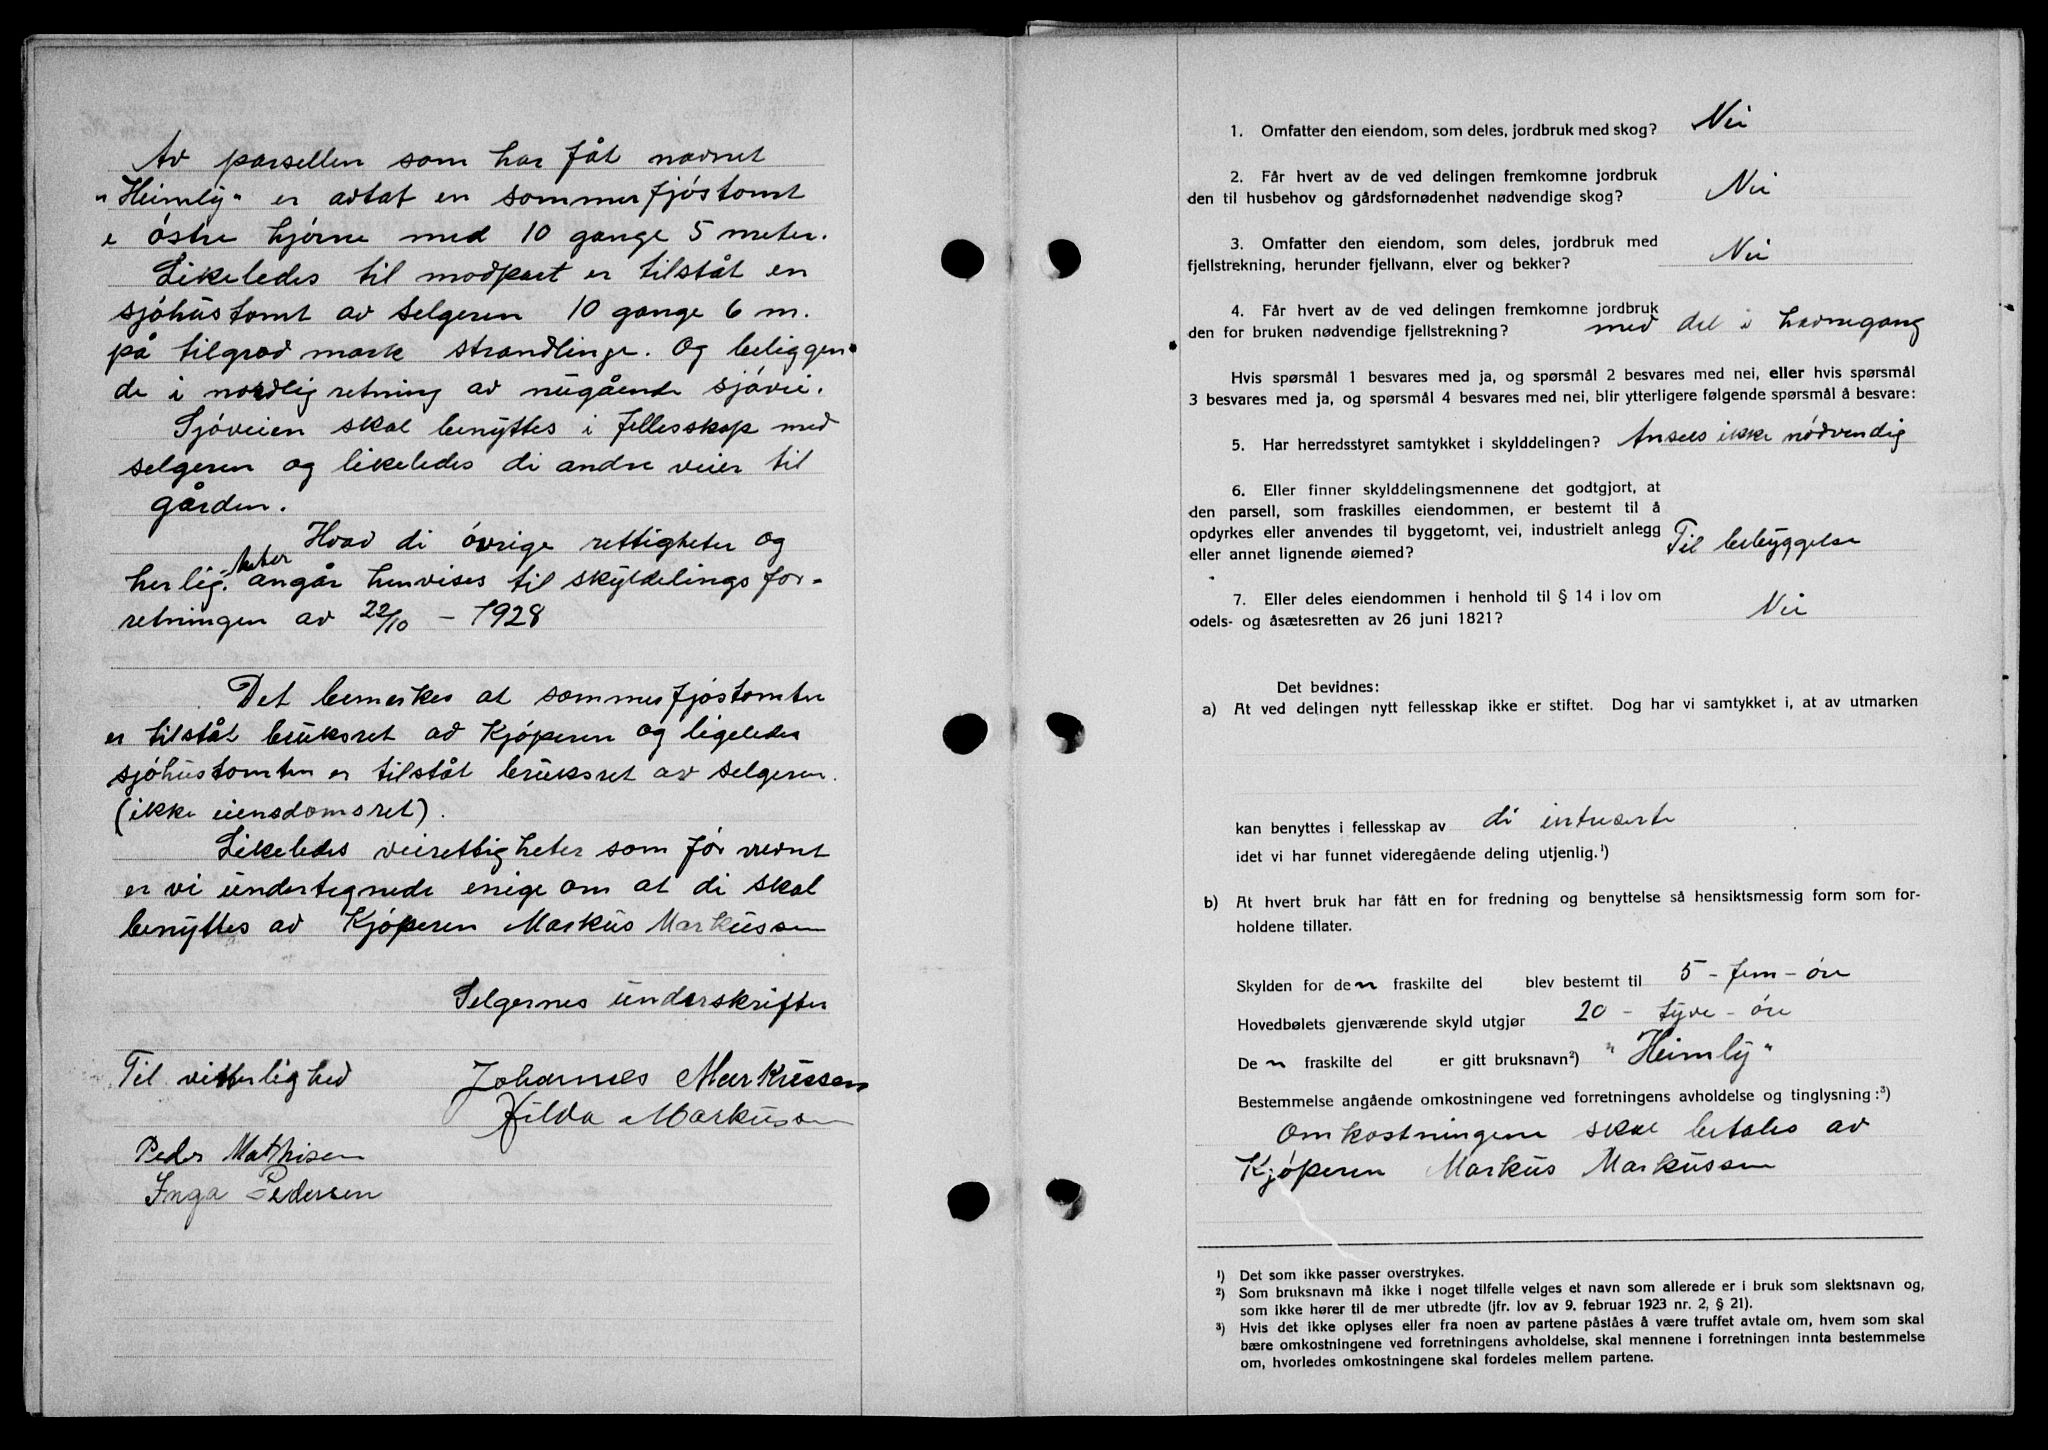 Av parsellen som har fåt navnet
"Heimly" er avtat en sommerfjóstomt
i óstre hjórne med 10 gange 5 meter.
Likeledes til modpart er tilståt en
sjóhústomt av selgeren 10 gange 6 m.
på tilgrod mark strandlinje. Og beliggen-
de i nordlig retning av nugående sjóvei.
Sjóveien skal benyttes i fellesskap med
selgeren og likeledes di andre veier til
gården.
Hvad di óvrige rettigheter og
herlig-heter angår henvises til skyldelingsfor-
retningen av 22/10 - 1928
Det bemerkes at sommerfjóstomten
er tilståt brúksret av Kjóperen og ligeledes
sjóhústomten er tilståt brúksret av selgeren.
(ikke eiensdomsret).
Likeledes veirettigheter som fór nevnt
er vi úndertegnede enige om at di skal
benyttes av Kjóperen Markús Markússen
Selgernes únderskrifter
Til vitterlighed Johannes Markússen
Hilda Markússen
Peder Mathisen
Inga Pedersen
1. Omfatter den eiendom, som deles, jordbruk med skog? Nei
2. Får hvert av de ved delingen fremkomne jordbruk
den til husbehov og gårdsfornødenhet nødvendige skog? Nei
3. Omfatter den eiendom, som deles, jordbruk med
fjellstrekning, herunder fjellvann, elver og bekker? Nei
4. Får hvert av de ved delingen fremkomne jordbruk
den for bruken nødvendige fjellstrekning? med del i havnegang
Hvis spørsmål 1 besvares med ja, og spørsmål 2 besvares med nei, eller hvis spørsmål
3 besvares med ja, og spørsmål 4 besvares med nei, blir ytterligere følgende spørsmål å besvare:
5. Har herredsstyret samtykket i skylddelingen? Ansees ikke nødvendig
6. Eller finner skylddelingsmennene det godtgjort, at
den parsell, som fraskilles eiendommen, er bestemt til å
opdyrkes eller anvendes til byggetomt, vei, industrielt anlegg
eller annet lignende øiemed? Til bebyggelse
7. Eller deles eiendommen i henhold til § 14 i lov om
odels- og åsætesretten av 26 juni 1821? Nei
Det bevidnes:
a) At ved delingen nytt fellesskap ikke er stiftet. Dog har vi samtykket i, at av utmarken
kan benyttes i fellesskap av di intreserte
idet vi har funnet videregående deling utjenlig.¹)
b) At hvert bruk har fått en for fredning og benyttelse så hensiktsmessig form som for-
holdene tillater.
Skylden for den fraskilte del blev bestemt til 5 - fem - øre
Hovedbølets gjenværende skyld utgjør 20 - tyve - øre
De n fraskilte del er gitt bruksnavn²) "Heimly"
Bestemmelse angående omkostningene ved forretningens avholdelse og tinglysning:³)
Omkostningene skal betales av
Kjóperen Markus Markússen
¹) Det som ikke passer overstrykes.
²) Som bruksnavn må ikke i noget tilfelle velges et navn som allerede er i bruk som slektsnavn og,
som ikke hører til de mer utbredte (jfr. lov av 9. februar 1923 nr. 2, § 21).
³) Hvis det ikke oplyses eller fra noen av partene påståes å være truffet avtale om, hvem som skal
bære omkostningene ved forretningens avholdelse, skal mennene i forretningen innta bestemmelse
om, hvorledes omkostningene skal fordeles mellem partene.